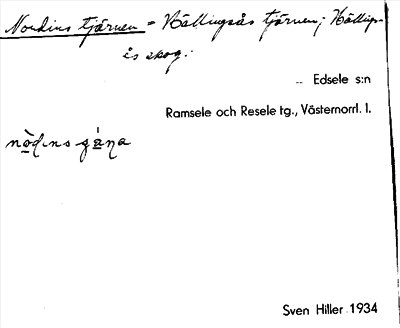 Nordins tjärnen = Hällingsås tjärnen; Hällings-
ås skog.
Edsele s:n
Ramsele och Resele tg., Västernorrl. l.
nòdins gána
Sven Hiller 1934